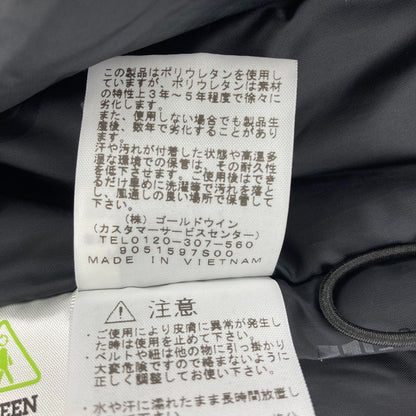 この製品はポリウレタンを使用し
ていますが、ポリウレタンは素材
の特性上3年〜5年程度で徐々に
劣化します。
また、使用しない場合でも製品生
産後、数年で劣化することがあり
ます。
汗や汚れが付着した状態や高温多
湿な環境での保管は、その耐久性
を低下させます。ご使用後はでき
るだけ早めに洗濯等で汚れを落と
し、風通しの良い場所で保管して
下さい。
(株)ゴールドウイン
(カスタマーサービスセンター)
TEL0120-307-560
9051597S00
MADE IN VIETNAM
注意
・ご使用により皮膚に異常が発生し
た時は使用を止めて下さい。
・ベルトや紐は他の物に引っ掛かり
大変危険ですので絡まないように
正しく調整してお使い下さい。
・水や汗に濡れたまま長時間放置し
EEN